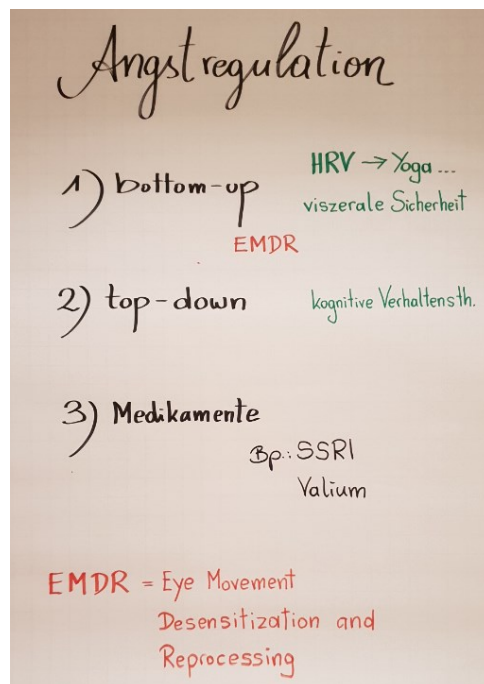 Angstregulation
1) bottom-up
HRV → Yoga ...
viszerale Sicherheit
EMDR
2) top-down
kognitive Verhaltensth.
3) Medikamente
Bp.: SSRI
Valium
EMDR = Eye Movement
Desensitization and
Reprocessing